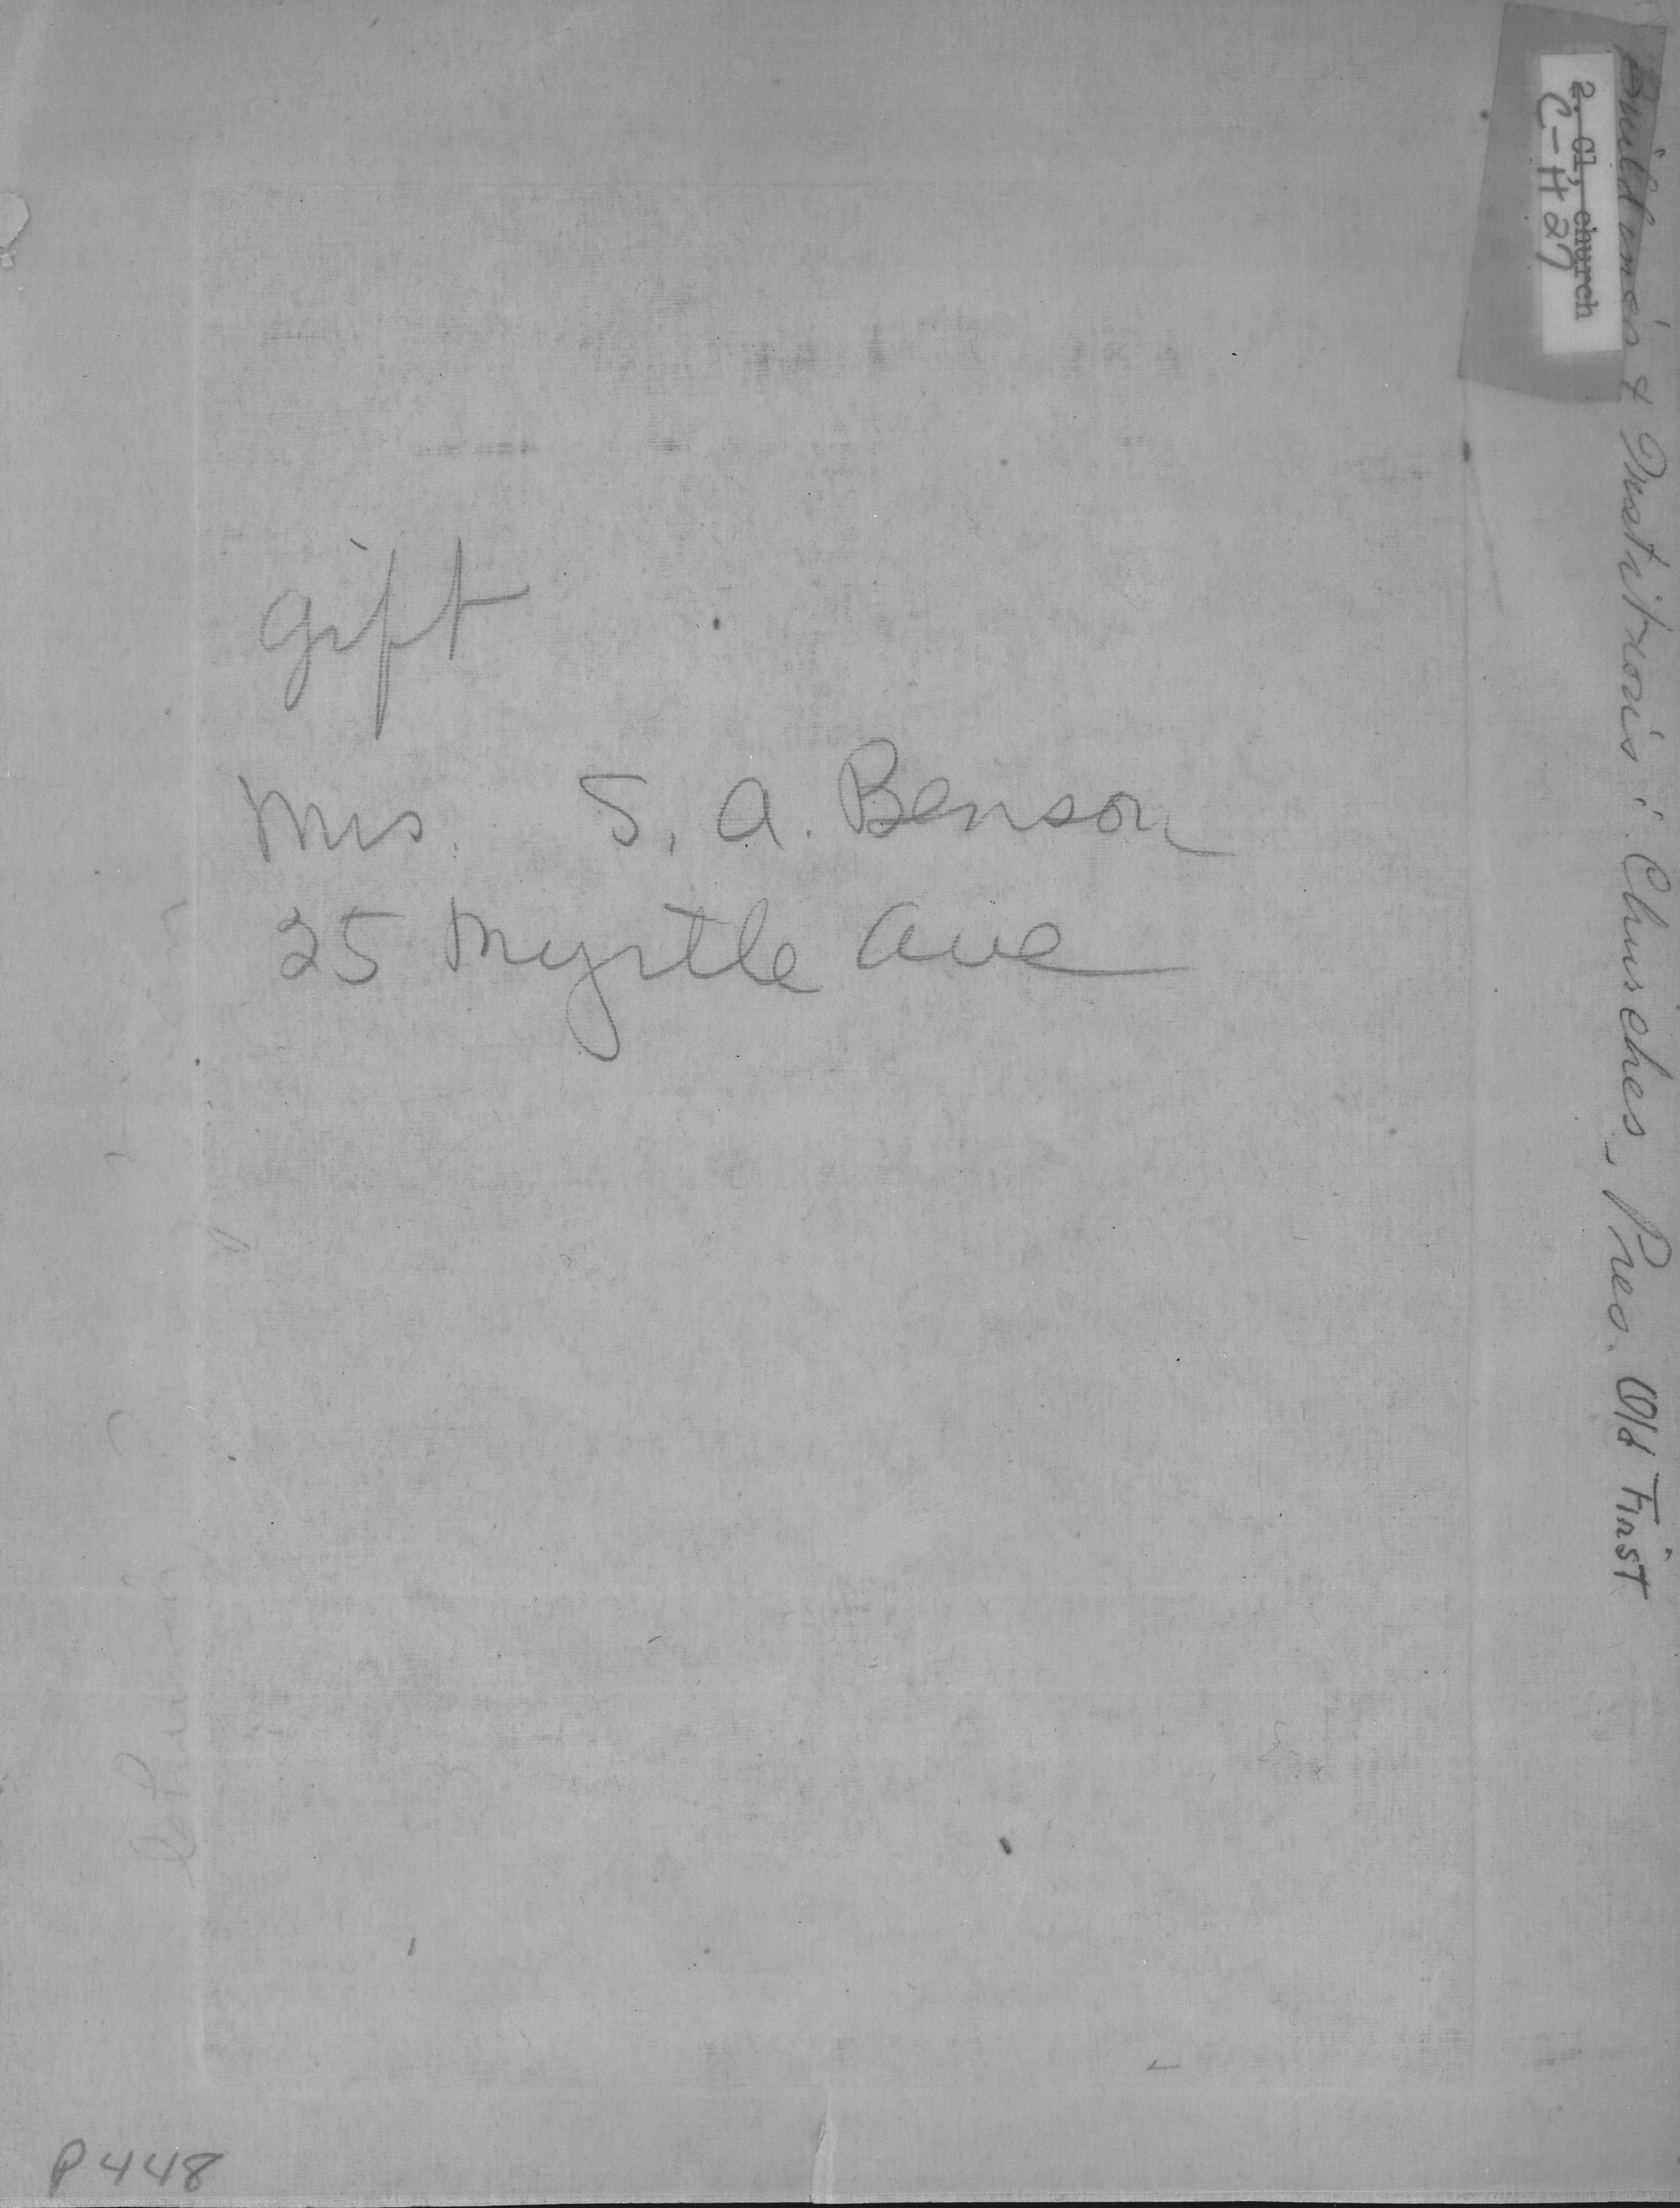 gift
Mrs. S. A. Benson
25 Myrtle Ave
Buildings & Institutions: Churches, Pres. Old First
2. Cl, church
C-H 27
P448